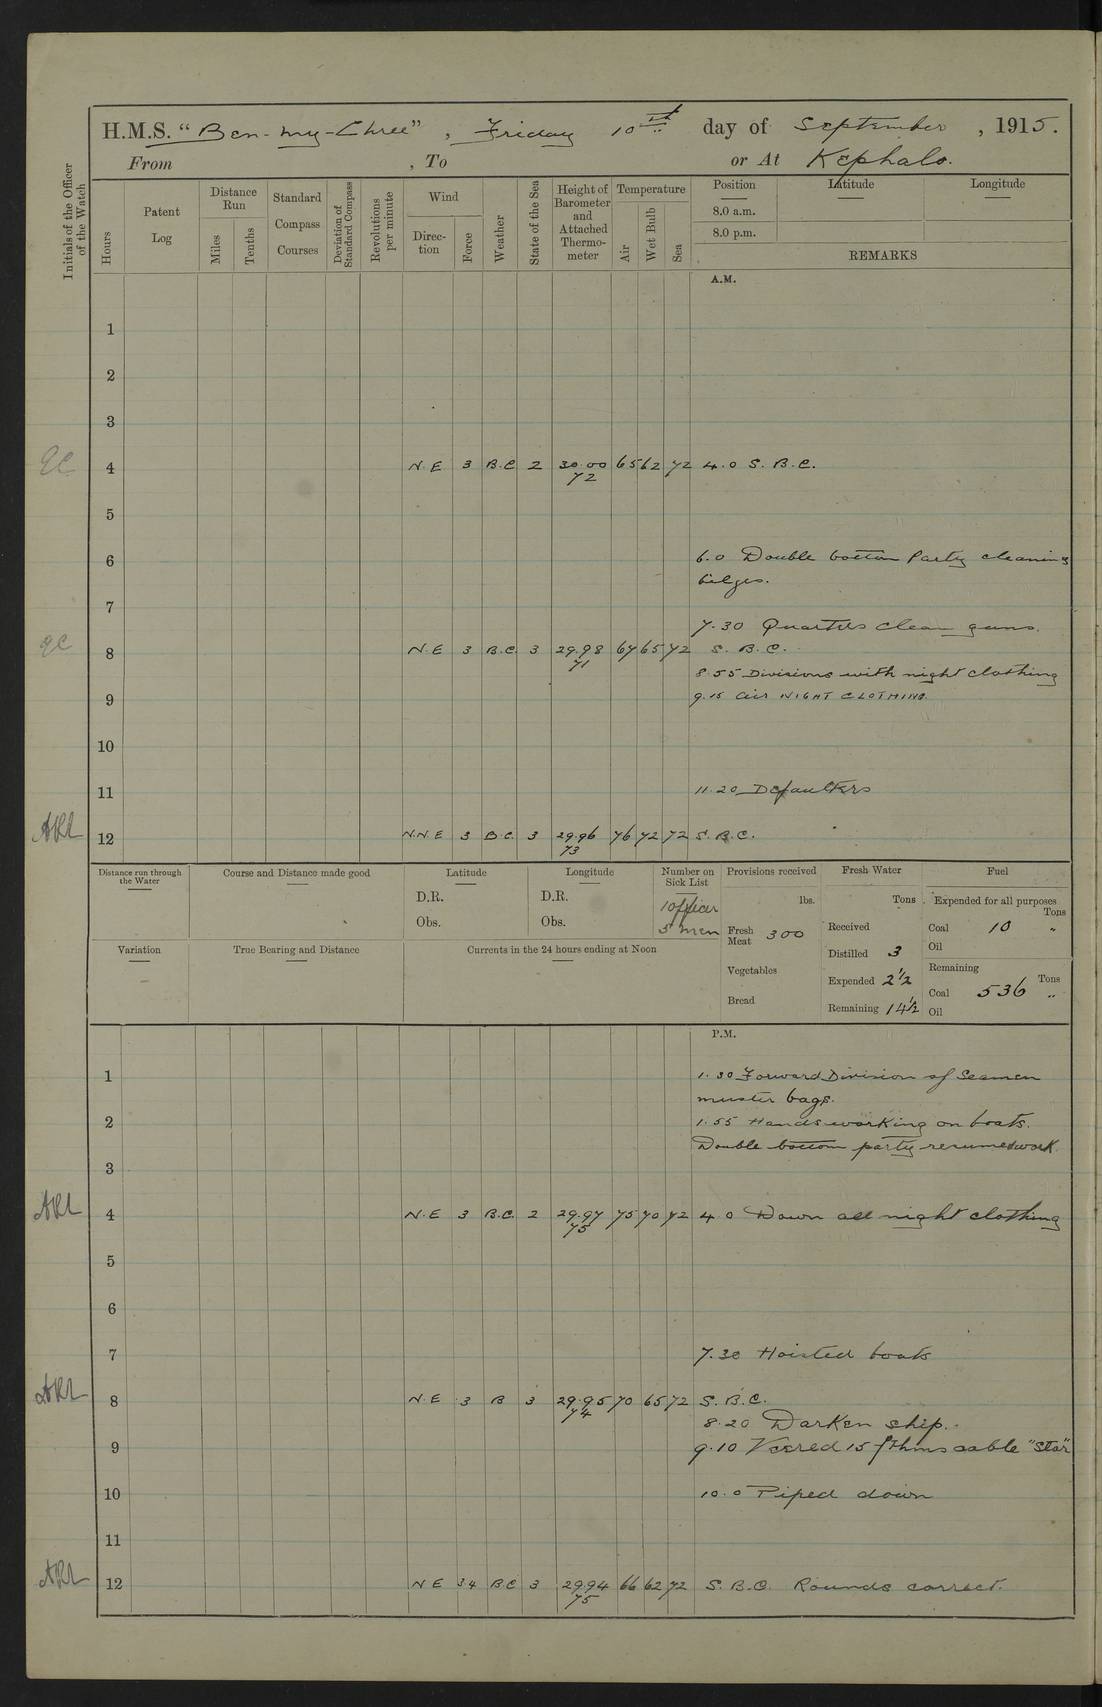 H.M.S. "Ben-my-Chree", Friday 10th day of September, 1915.
From , To or At Kephalo.
Initials of the Officer of the Watch
Hours
Patent Log
Distance Run
Miles
Tenths
Standard Compass Courses
Deviation of Standard Compass
Revolutions per minute
Wind
Direction
Force
Weather
State of the Sea
Height of Barometer and Attached Thermometer
Temperature
Air
Wet Bulb
Sea
Position Latitude Longitude
8.0 a.m.
8.0 p.m.
REMARKS
A.M.
1
2
3
4 N.E 3 B.C 2 30.00 72 65 62 72 4.0 S.B.C.
5
6 6.0 Double bottom Party cleaning
bilges.
7
7.30 Quarters clean guns.
8 N.E 3 B.C. 3 29.98 71 67 65 72 S.B.C.
8.55 Divisions with night clothing
9 9.15 Air NIGHT CLOTHING.
10
11 11.20 Defaulters
ARL 12 N.N.E 3 B.C. 3 29.96 73 76 72 72 S.B.C.
Distance run through the Water
Course and Distance made good
Latitude
D.R.
Obs.
Longitude
D.R.
Obs.
Number on Sick List
1 Officer
5 men
Provisions received
lbs.
Fresh Meat 300
Vegetables
Bread
Fresh Water
Tons
Received
Distilled 3
Expended 2½
Remaining 14½
Fuel
Expended for all purposes
Tons
Coal 10 "
Oil
Remaining
Tons
Coal 536 "
Oil
Variation
True Bearing and Distance
Currents in the 24 hours ending at Noon
P.M.
1 1.30 Forward Division of Seamen
muster bags.
2 1.55 Hands working on boats.
Double bottom party resumed work.
3
ARL 4 N.E 3 B.C. 2 29.97 75 75 70 72 4.0 Down all night clothing
5
6
7 7.30 Hoisted boats
ARL 8 N.E 3 B 3 29.95 74 70 65 72 S.B.C.
8.20 Darken ship.
9 9.10 Veered 15 fthms cable "Star"
10 10.0 Piped down
11
ARL 12 N E 3 4 B.C 3 29.94 75 66 62 72 S.B.C. Rounds correct.